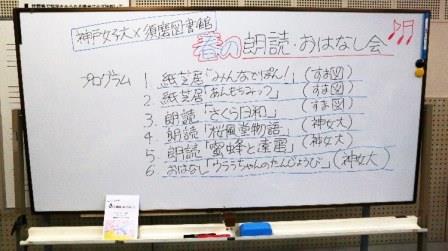 神戸女子大×須磨図書館
春の朗読・おはなし会
プログラム
1. 紙芝居「みんなでぽん!」(すま図)
2. 紙芝居「あんもちみっつ」(すま図)
3. 朗読「さくら日和」(すま図)
4. 朗読「桜風堂物語」(神女大)
5. 朗読「蜜蜂と遠雷」(神女大)
6. おはなし「うららちゃんのたんじょうび」(神女大)